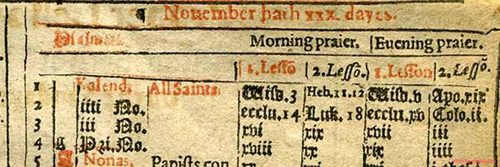 Nouember hath xxx. dayes.
Psalmes. Morning praier. Euening praier.
1. Lessō 2. Lessō. 1. Lesson 2. Lessō.
1 Kalend. All Saints. Wisd. 3 Heb. 11. 12 Wisd. v Apo. xix
2 iiii No. ecclu. 14 Luk. 18 ecclu. xv Colo. ii.
3 iii No. xvi xix xvii iii
4 Pri. No. xviii xx xix iiii
A Nonas. Papists con